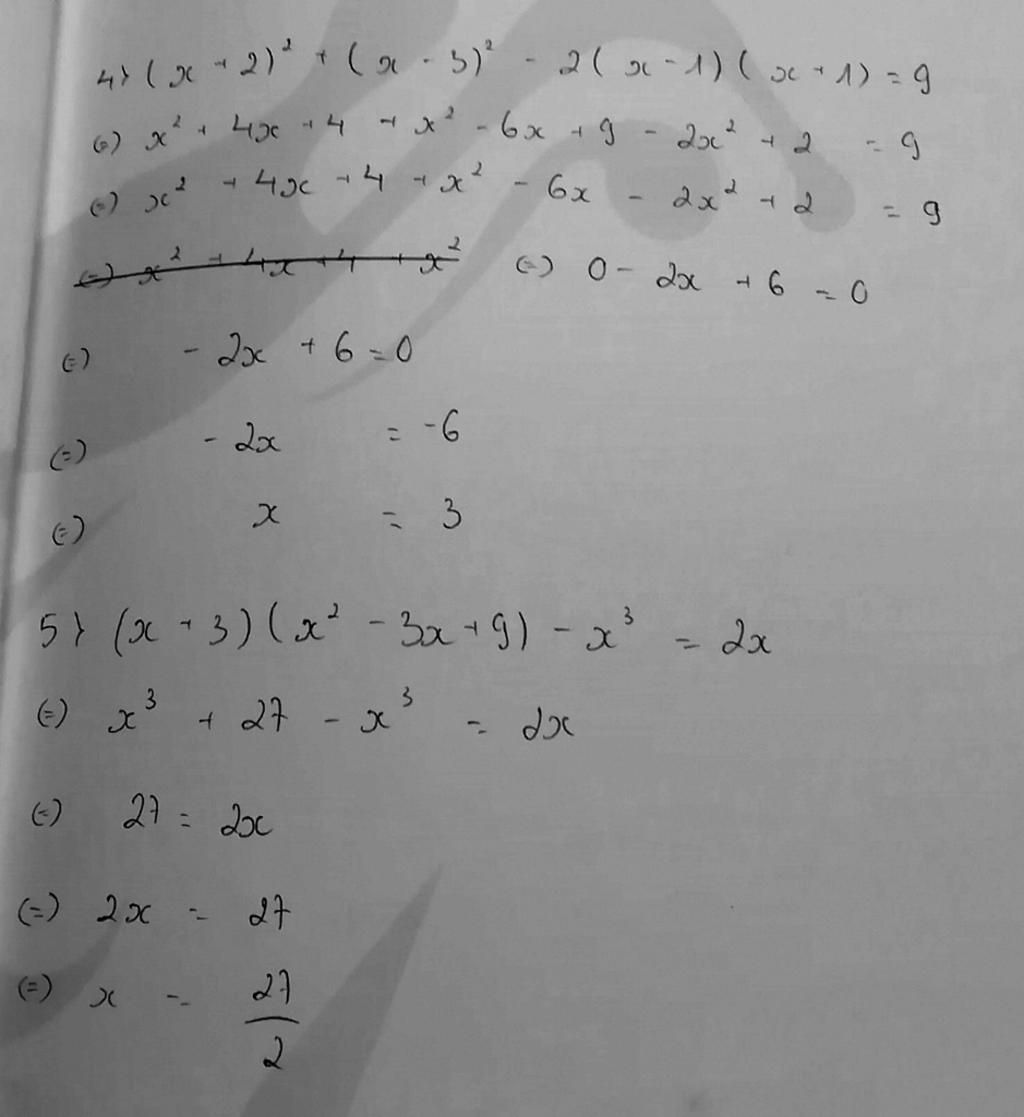 4} (x + 2)² + (x - 3)² - 2(x - 1)(x + 1) = 9
(=) x² + 4x + 4 + x² - 6x + 9 - 2x² + 2 = 9
(=) x² + 4x + 4 + x² - 6x - 2x² + 2 = 9
(=) x² + 4x + 4 + x² (=) 0 - 2x + 6 = 0
(=) - 2x + 6 = 0
(=) - 2x = -6
(=) x = 3
5} (x + 3)(x² - 3x + 9) - x³ = 2x
(=) x³ + 27 - x³ = 2x
(=) 27 = 2x
(=) 2x = 27
(=) x = 27/2